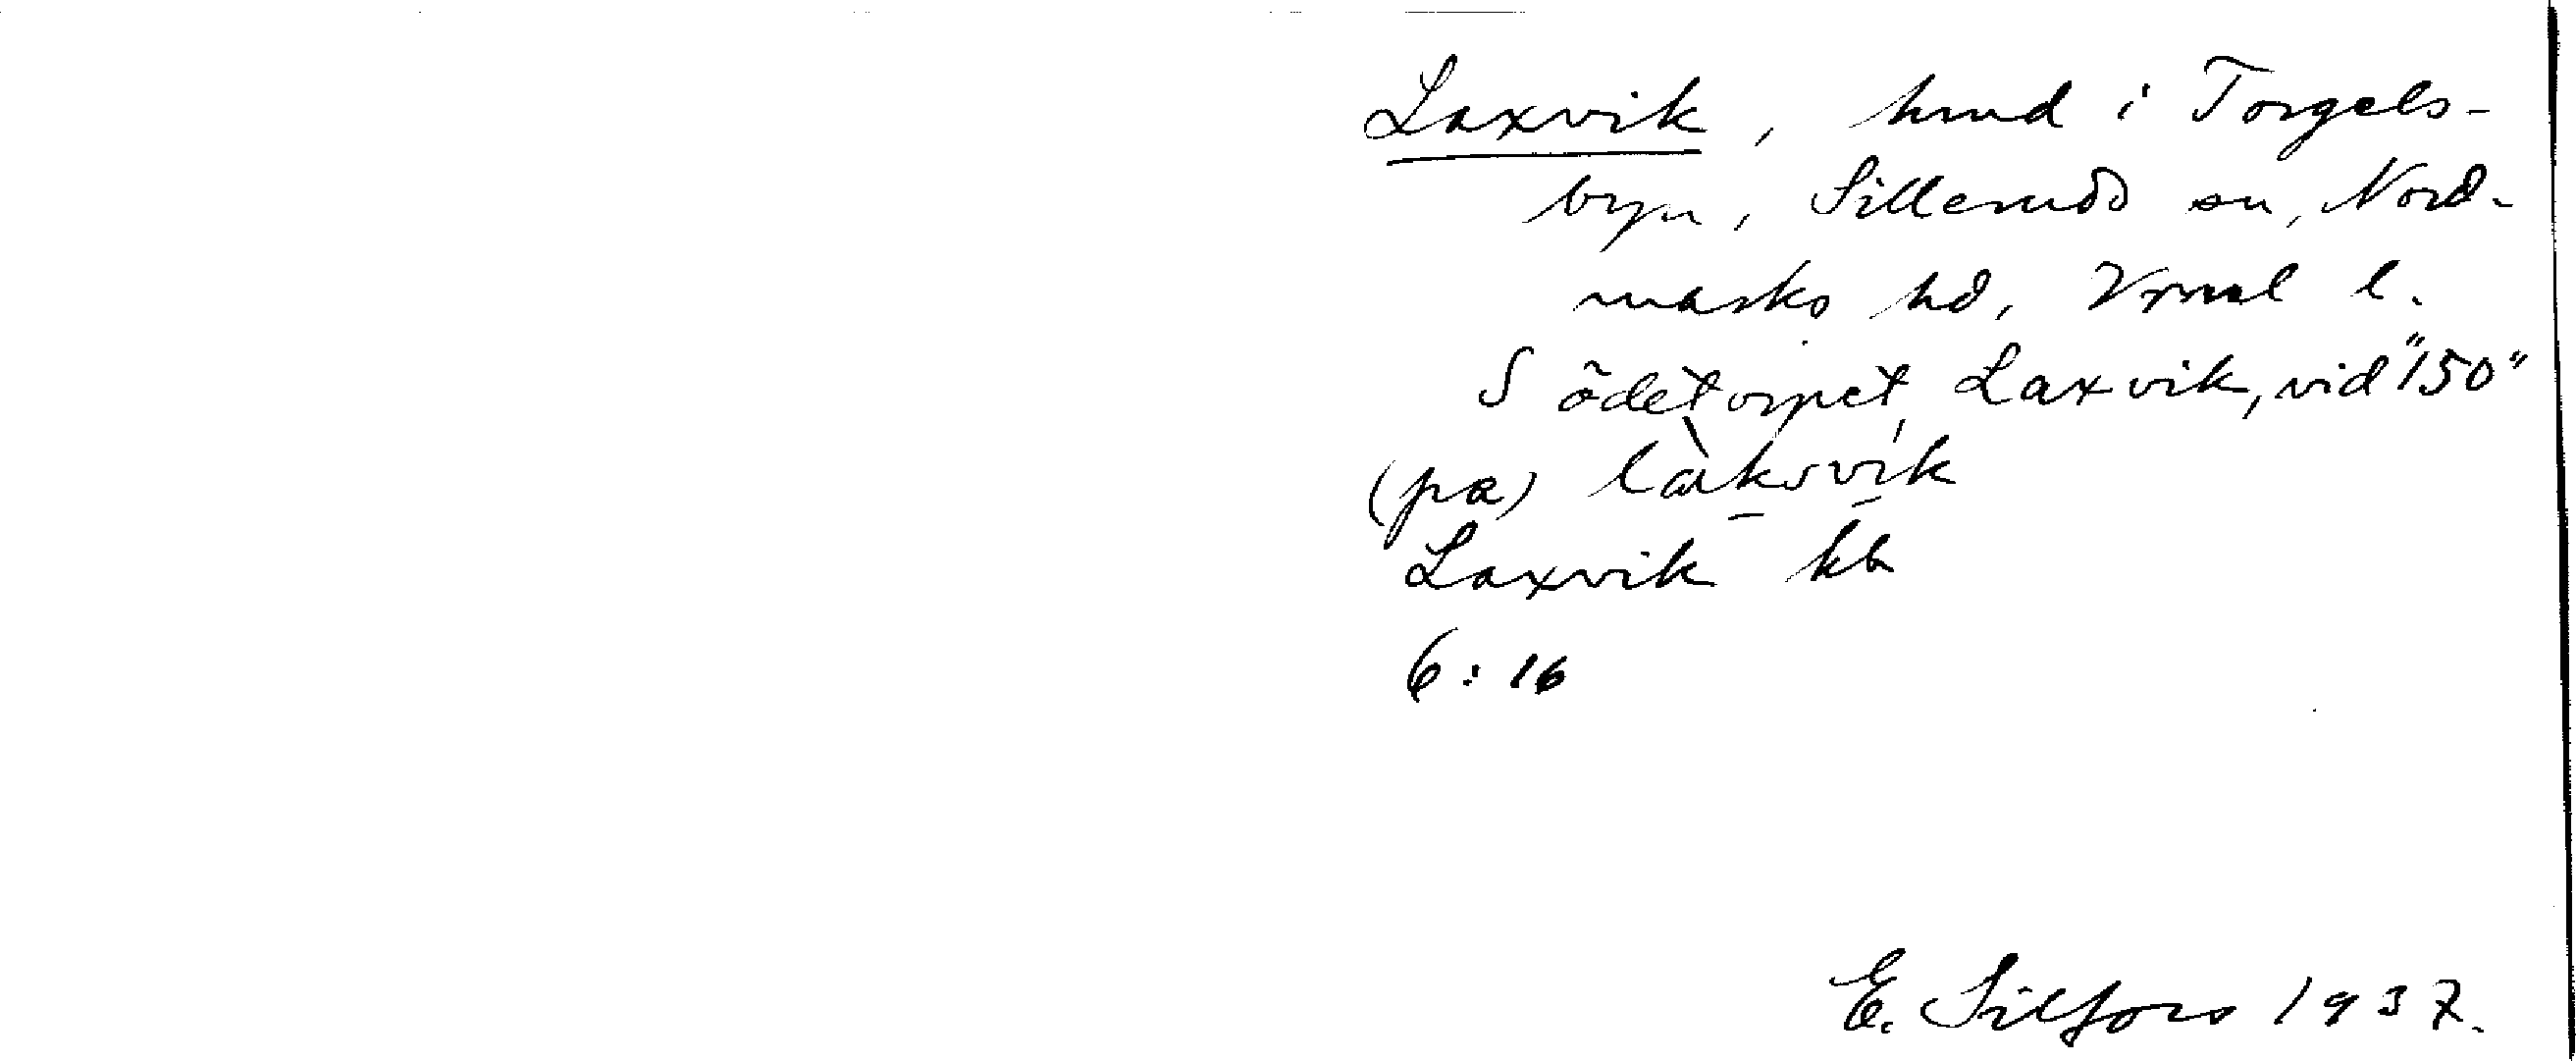 Laxvik, hmd i Torgels-
byn, Silleruds sn, Nord-
marks hd, Vrml l.
S ödetorpet Laxvik, vid "150"
(pa) làksvik
Laxvik kb
6:16
E. Silfors 1937.